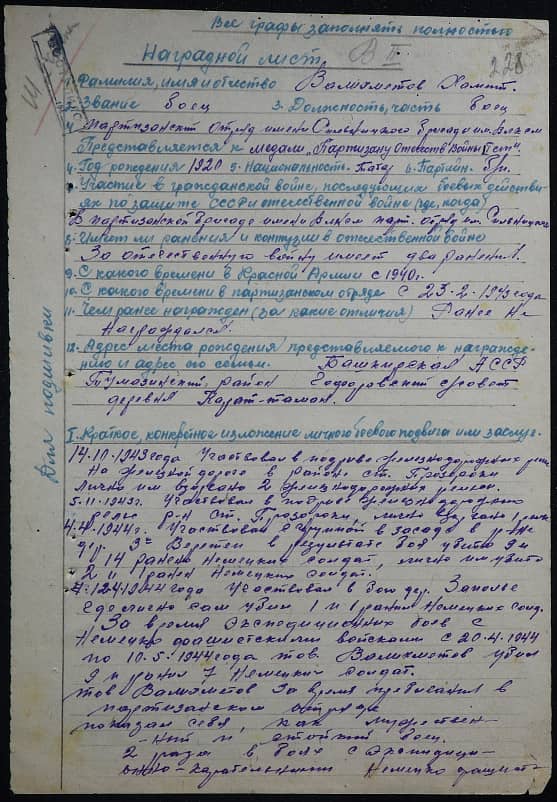 Все графы заполнять полностью
Наградной лист В II
228
1. Фамилия, имя и отчество Валиахметов
2. Звание боец 3. Должность, часть боец
Партизанский отряд имени бригады им. ВЛКСМ
Представляется к медали "Партизану Отечеств. Войны II ст."
4. Год рождения 1920 5. Национальность. Татар 6. Партийн. б/п.
7. Участие в гражданской войне, последующих боевых действи-
ях по защите СССР и отечественной войне (где, когда)
В партизанской бригаде имени ВЛКСМ парт. отряд им.
8. Имеет ли ранения и контузии в отечественной войне
За отечественную войну имеет два ранения.
9. С какого времени в Красной Армии с 1940г.
10. С какого времени в партизанском отряде с 23-2-1943 года
11. Чем ранее награжден (за какие отличия) Ранее не
награждался.
12. Адрес места рождения представляемого к награжде-
нию и адрес его семьи. Башкирская АССР
район сельсовет
деревня
Для подшивки
I. Краткое, конкретное изложение личного боевого подвига или заслуг.
1943 года участвовал в подрыве железнодорожных рельс
на железной дороге в районе ст.
лично им взорвано 2 железнодорожных рельса.
5-11-1943г. участвовал в подрыве железнодорожных
рельс р-н ст. лично взорвано 1 рельс
4.4-1944г. участвовал с группой в засаде в р-не
дер. в результате боя убито 9 и
14 ранено немецких солдат, лично им убито
2 и 1 ранен немецких солдат.
1944 года участвовал в бою дер. Заполье
где лично сам убил 1 и 1 ранил немецких солд.
За время экспедиционных боев с
немецко фашистскими войсками с 20-4-1944
по 10.5-1944 года тов. Валиахметов убил
9 и ранил 7 немецких солдат.
тов Валиахметов за время пребывания в
партизанском отряде
показал себя, как мужествен-
-ный и стойкий боец.
2 раза в боях с экспедици-
онно-карательными немецко фашист